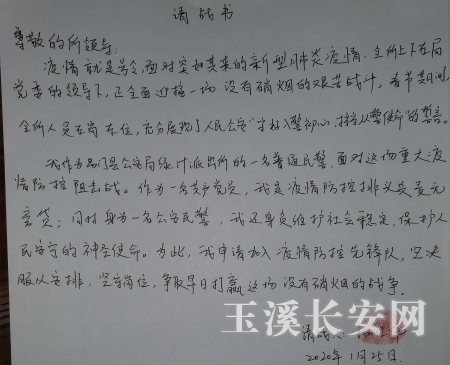 请战书
尊敬的所领导:
疫情就是号令,面对突如其来的新型肺炎疫情,全所上下在局
党委的领导下,正全面迎接一场没有硝烟的艰苦战斗。春节期间,
全所人员在岗在位,充分展现了人民公安“守初心入警初心,担当从警使命”的誓言。
我作为易门县公安局绿汁派出所的一名普通民警,面对这场重大疫
情防控阻击战。作为一名共产党员,我是疫情防控排头兵责无
旁贷;同时身为一名公安民警,我还身负维护社会稳定,保护人
民安宁的神圣使命。为此,我申请加入疫情防控先锋队,坚决
服从安排,坚守岗位,争取早日打赢这场没有硝烟的战争。
请战人
2020年1月25日.
玉溪长安网